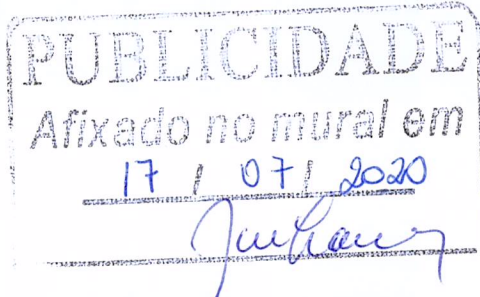 PUBLICIDADE
Afixado no mural em
17 / 07 / 2020